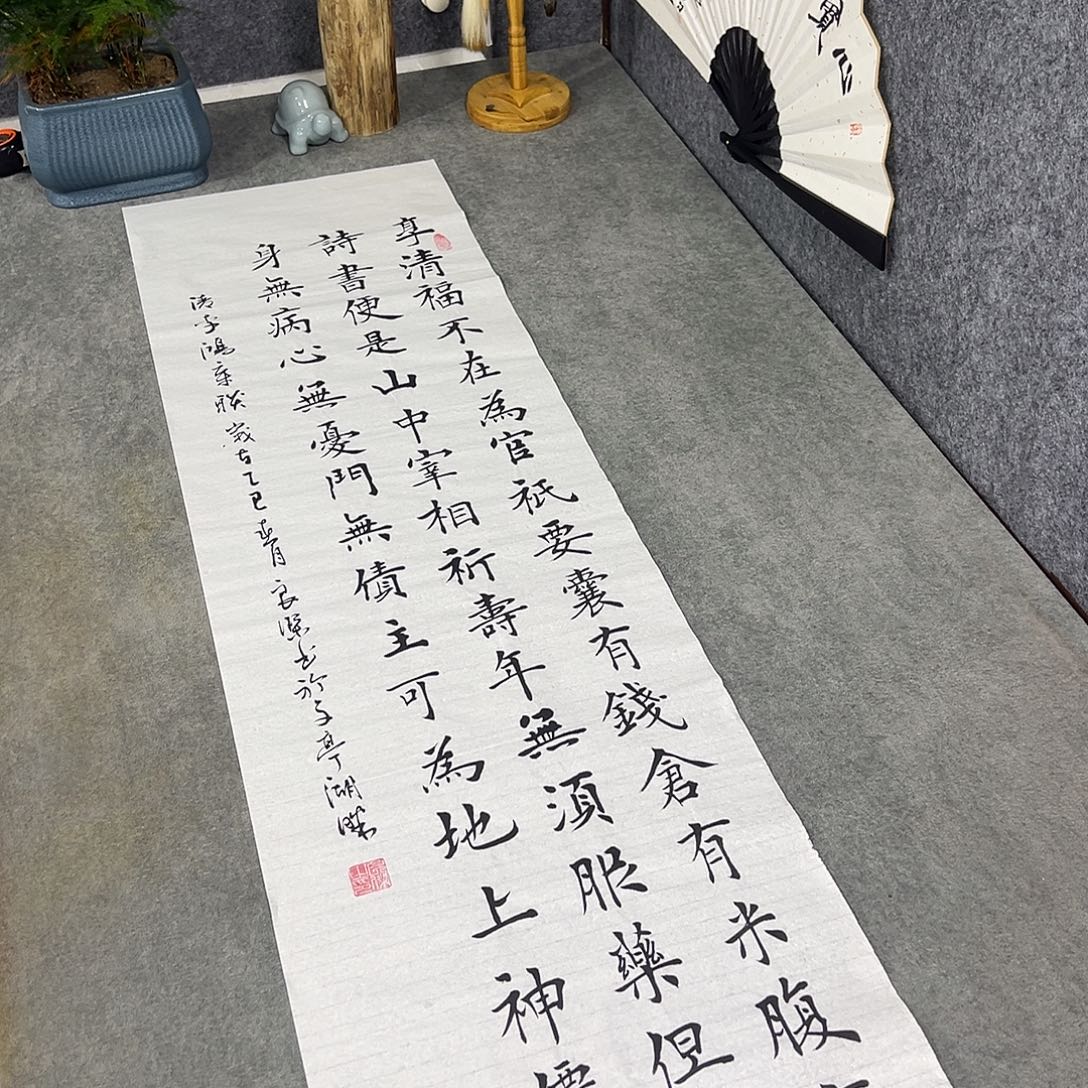 享清福不在為官祇要囊有錢倉有米腹
詩書便是山中宰相祈壽年無須服藥但
身無病心無憂門無債主可為地上神
歲在乙巳